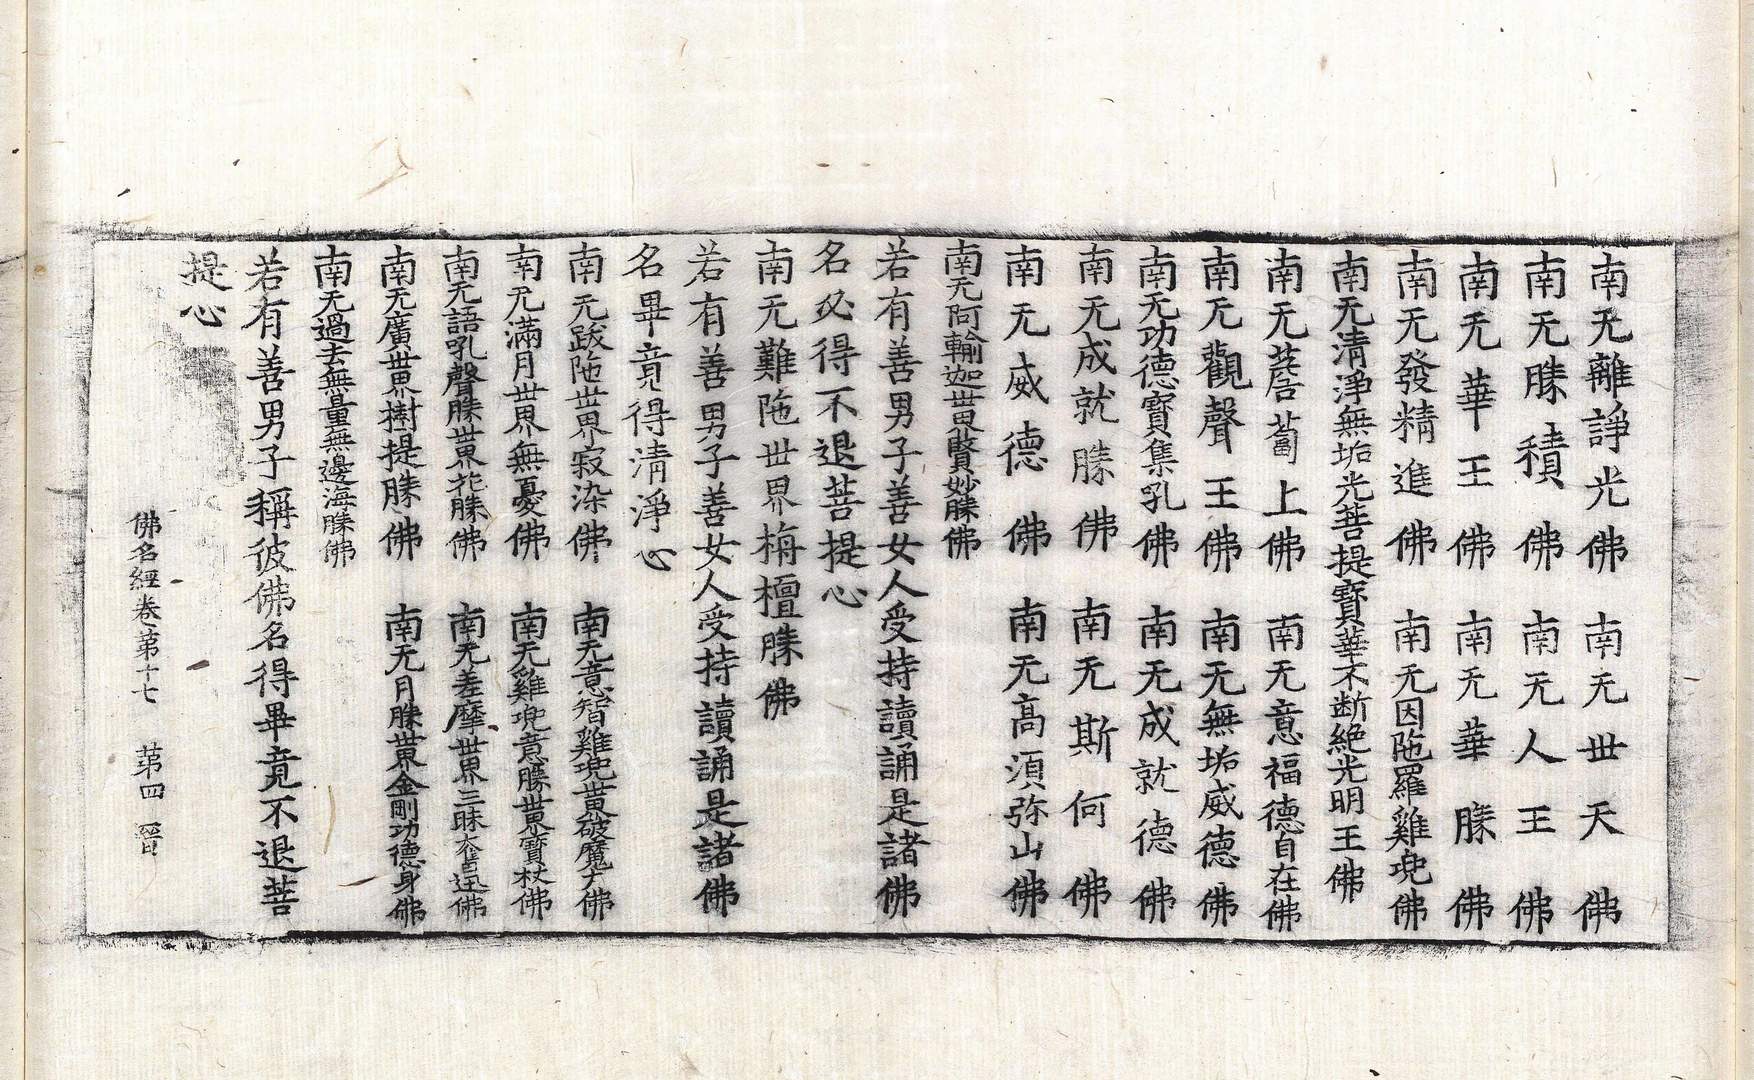 南无離諍光佛 南无世天佛
南无勝積佛 南无人王佛
南无華王佛 南无華勝佛
南无發精進佛 南无因陁羅雞兜佛
南无清淨無垢光菩提寶華不断絶光明王佛
南无薝蔔上佛 南无意福德自在佛
南无觀聲王佛 南无無垢威德佛
南无功德寶集乳佛 南无成就德佛
南无成就勝佛 南无斯何佛
南无威德佛 南无高湏弥山佛
南无阿輸迦世界賢妙勝佛
若有善男子善女人受持讀誦是諸佛
名必得不退菩提心
南无難陁世界栴檀勝佛
若有善男子善女人受持讀誦是諸佛
名畢竟得清淨心
南无跋陁世界寂染佛 南无意智雞兜世界破魔力佛
南无滿月世界無憂佛 南无雞兜意勝世界寶杖佛
南无語吼聲勝世界花勝佛 南无差摩世界三昧奮迅佛
南无廣世界樹提勝佛 南无月勝世界金剛功德身佛
南无過去無量無邊海勝佛
若有善男子稱彼佛名得畢竟不退菩
提心
佛名經卷第十七 第四